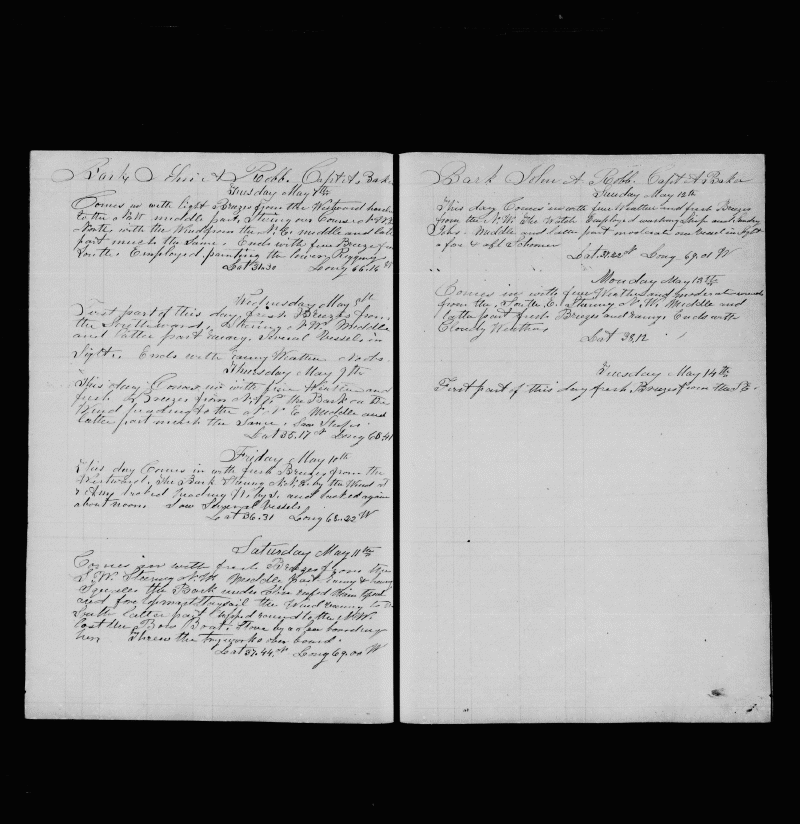 Bark John A Robb. Capt A. Baker
Tuesday May 7th
Comes in with light Breezes from the Westward
to the NW middle part, Steering our Course
North with the Wind from the N.E. middle and
part much the Same. Ends with fine Breeze
Employed painting the lower Rigging
Lat 31.30 Long 66.16
Wednesday May 8th
First part of this day fresh Breezes from
the Southward, Steering N.W. Middle
and latter part Several Vessels in
Sight. Ends with Weather
Thursday May 9th
This day Comes in with fine Weather and
fresh Breezes from the Bark on the
Wind heading to the N.E. Middle and
latter part much the Same. Saw Ships
Lat 35.17 N Long 68.41
Friday May 10th
This day Comes in with fresh Breezes from the
Westward, The Bark Steering by the Wind at
heading and tacked again
about noon Saw Several Vessels
Lat 36.31 Long 68.22 W
Saturday May 11th
Comes in with fresh Breezes from the
S.W. Steering N.W. Middle part
Squalls the Bark under Close reefed Main topsail
and fore topmast staysail the Wind
South latter part Wind to the
lost the Bow Boat Stove by a Sea boarding
her. Threw the tryworks over board.
Lat 37.44 N Long 69.00 W
Bark John A. Robb. Capt A Baker
Sunday May 12th
This day Comes in with fine Weather and fresh Breezes
from the N.W. The Watch Employed washing Ship and Sundry
Jobs. Middle and latter part moderate one Vessel in Sight
a fore & aft Schooner
Lat Long 69.01 W
" "
Monday May 13th
Comes in with fine Weather and moderate winds
from the Steering N.W. Middle and
latter part fresh Breezes and rainy. Ends with
Cloudy Weather
Lat 38.12
Tuesday May 14th
First part of this day fresh Breezes from the